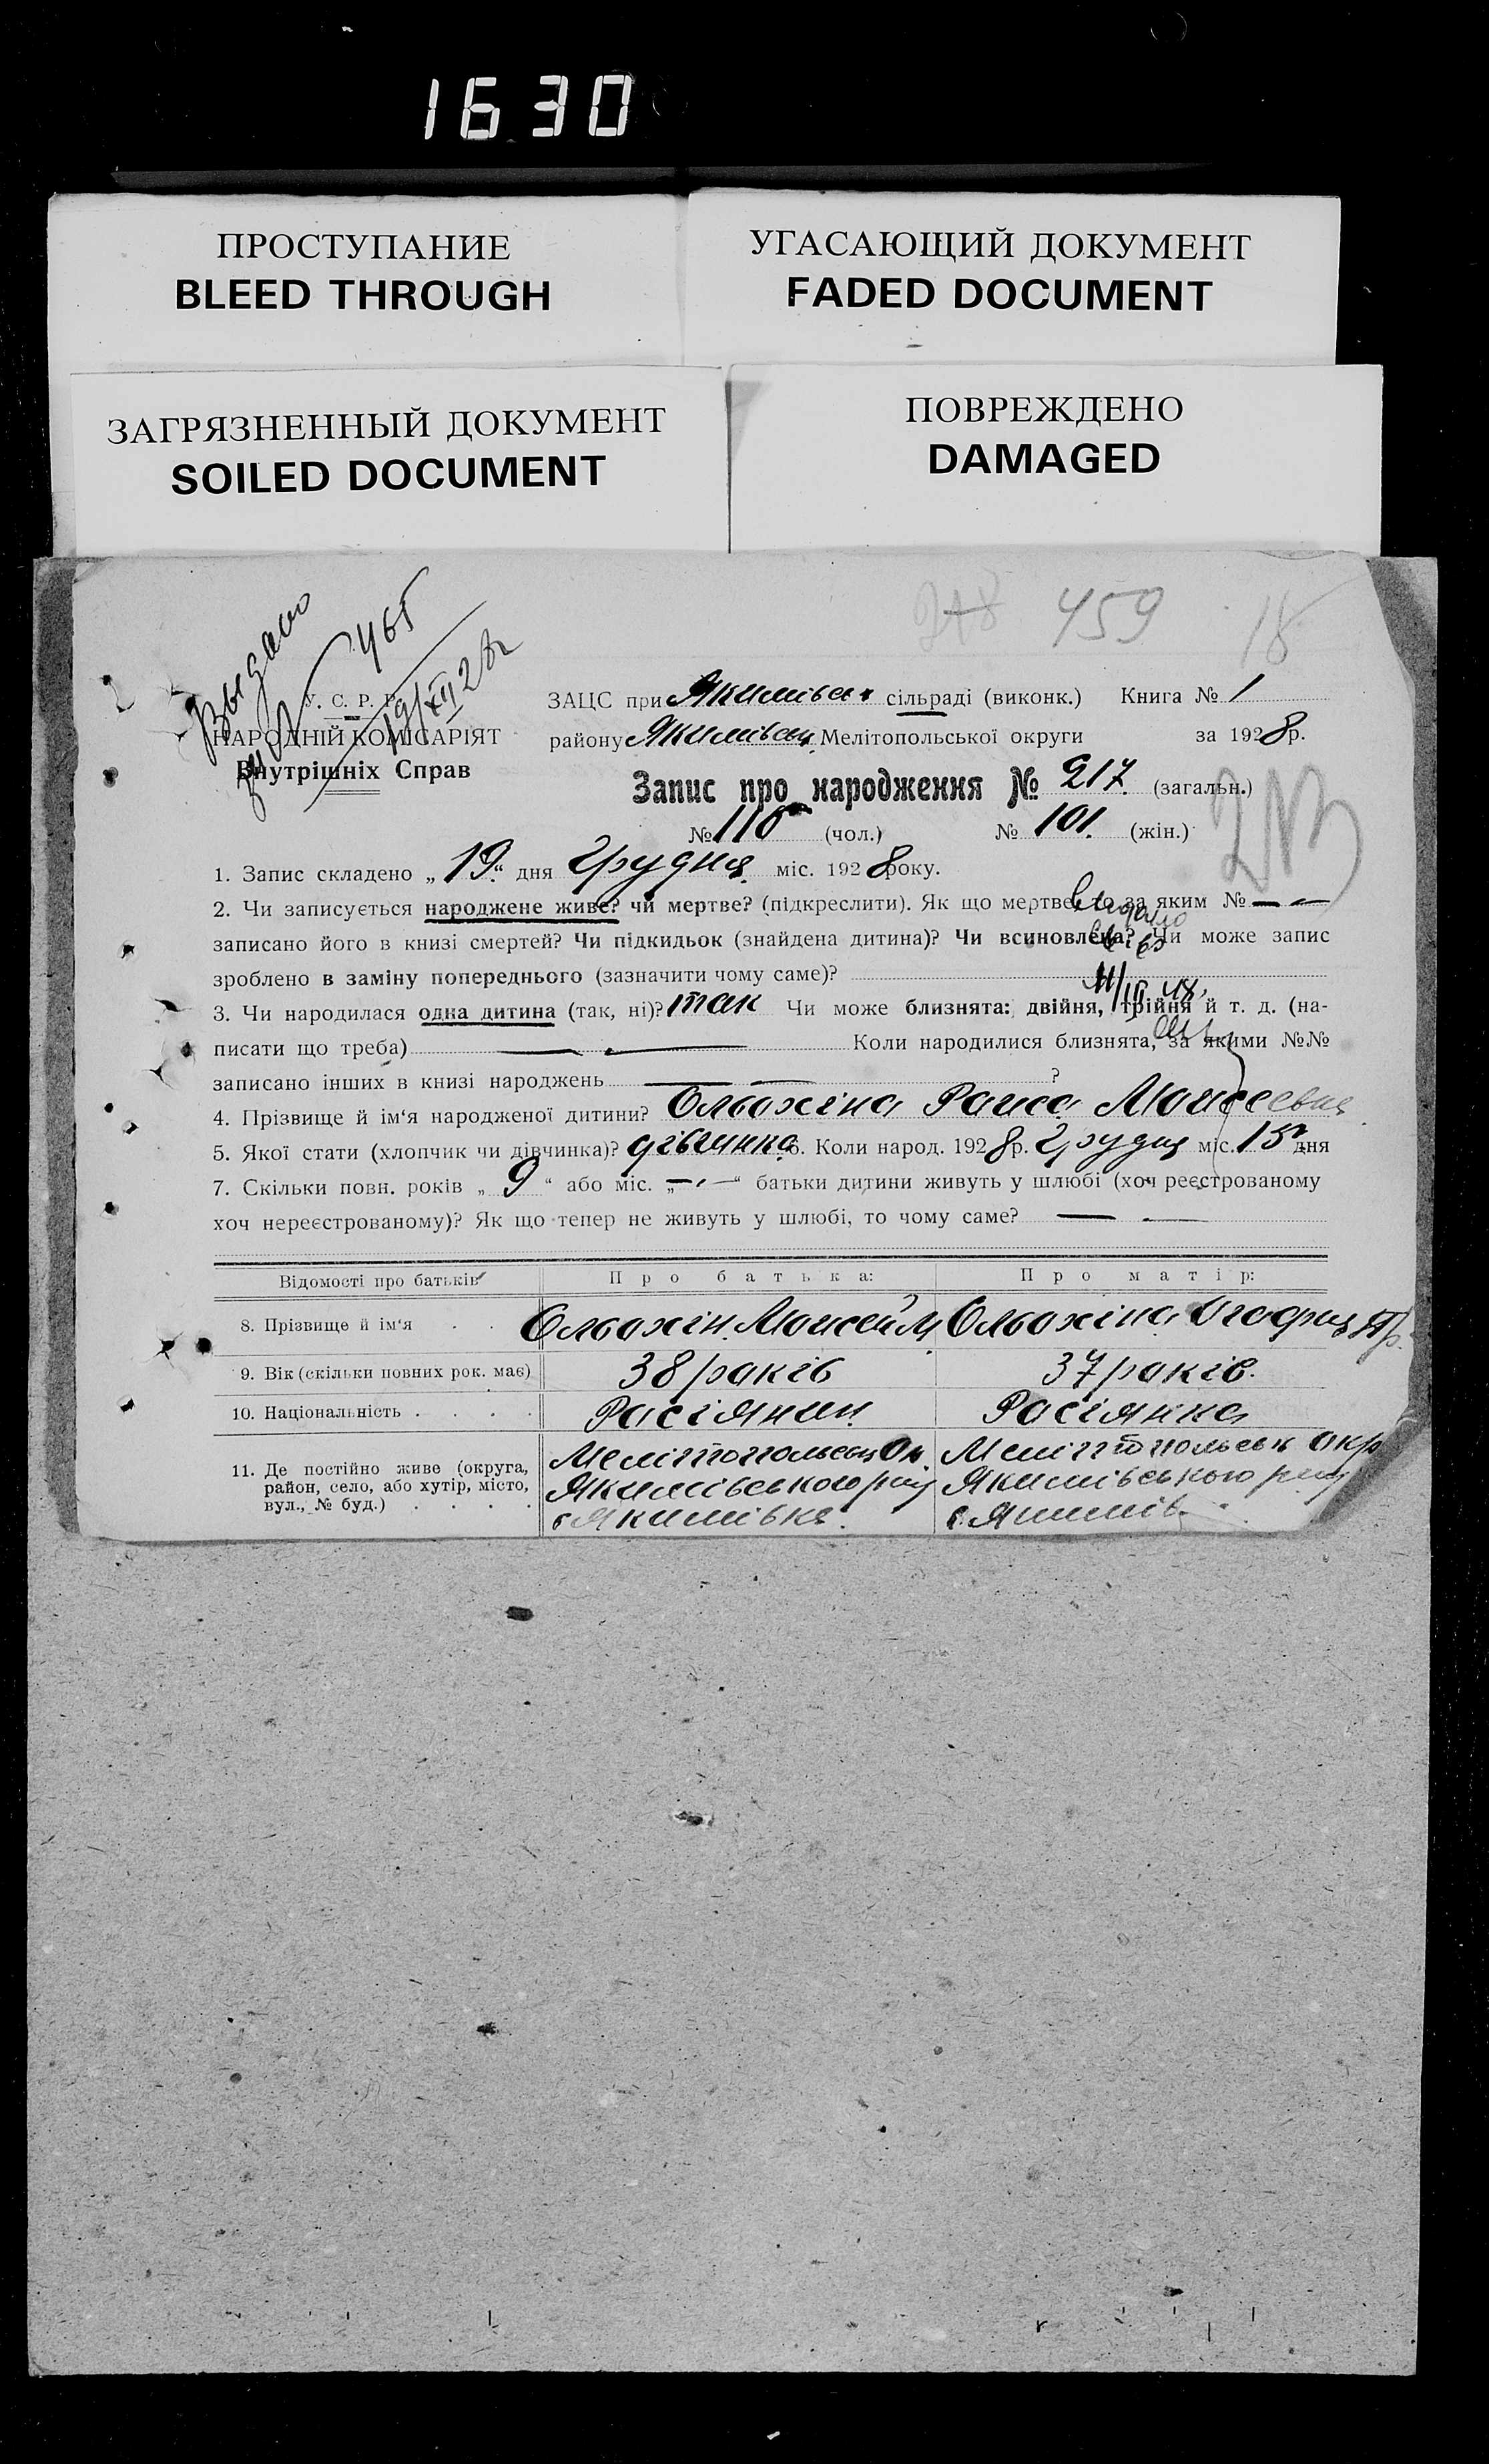 1630
ПРОСТУПАНИЕ
BLEED THROUGH
УГАСАЮЩИЙ ДОКУМЕНТ
FADED DOCUMENT
ЗАГРЯЗНЕННЫЙ ДОКУМЕНТ
SOILED DOCUMENT
ПОВРЕЖДЕНО
DAMAGED
459 18
Выдано
465
19/XII 28
У. С. Р. Р.
НАРОДНІЙ КОМІСАРІЯТ
Внутрішніх Справ
ЗАЦС при Якимівськ сільраді (виконк.) Книга № 1
району Мелітопольської округи за 1928р.
Запис про народження № 217 (загальн.)
№ 116 (чол.) № 101. (жін.)
1. Запис складено „19“ дня Грудня міс. 1928 року.
2. Чи записується народжене живе? чи мертве? (підкреслити). Як що мертве, то за яким № — —
записано його в книзі смертей? Чи підкидьок (знайдена дитина)? Чи всиновлена? Чи може запис
зроблено в заміну попереднього (зазначити чому саме)?
3. Чи народилася одна дитина (так, ні)? так Чи може близнята: двійня, трійня й т. д. (на-
писати що треба) — — Коли народилися близнята, за якими №№
записано інших в книзі народжень — — ?
4. Прізвище й ім‘я народженої дитини? Ольохіна Раиса Моисеевна
5. Якої стати (хлопчик чи дівчинка)? дівчинка 6. Коли народ. 1928р. Грудня міс. 15 дня
7. Скільки повн. років „ 9 “ або міс. „ — “ батьки дитини живуть у шлюбі (хоч реєстрованому
хоч нереєстрованому)? Як що тепер не живуть у шлюбі, то чому саме? — —
Відомості про батьків Про батька: Про матір:
8. Прізвище й ім‘я Ольохін Моисей М Ольохіна Агафия
9. Вік (скільки повних рок. має) 38 років 37 років.
10. Національність Расіянин Расіянка
11. Де постійно живе (округа,
район, село, або хутір, місто,
вул., № буд.)
Мелітопольськ Ок. Мелітопольськ Окр
Якимівського рну Якимівського рну
с Якимівка. с. Якимів